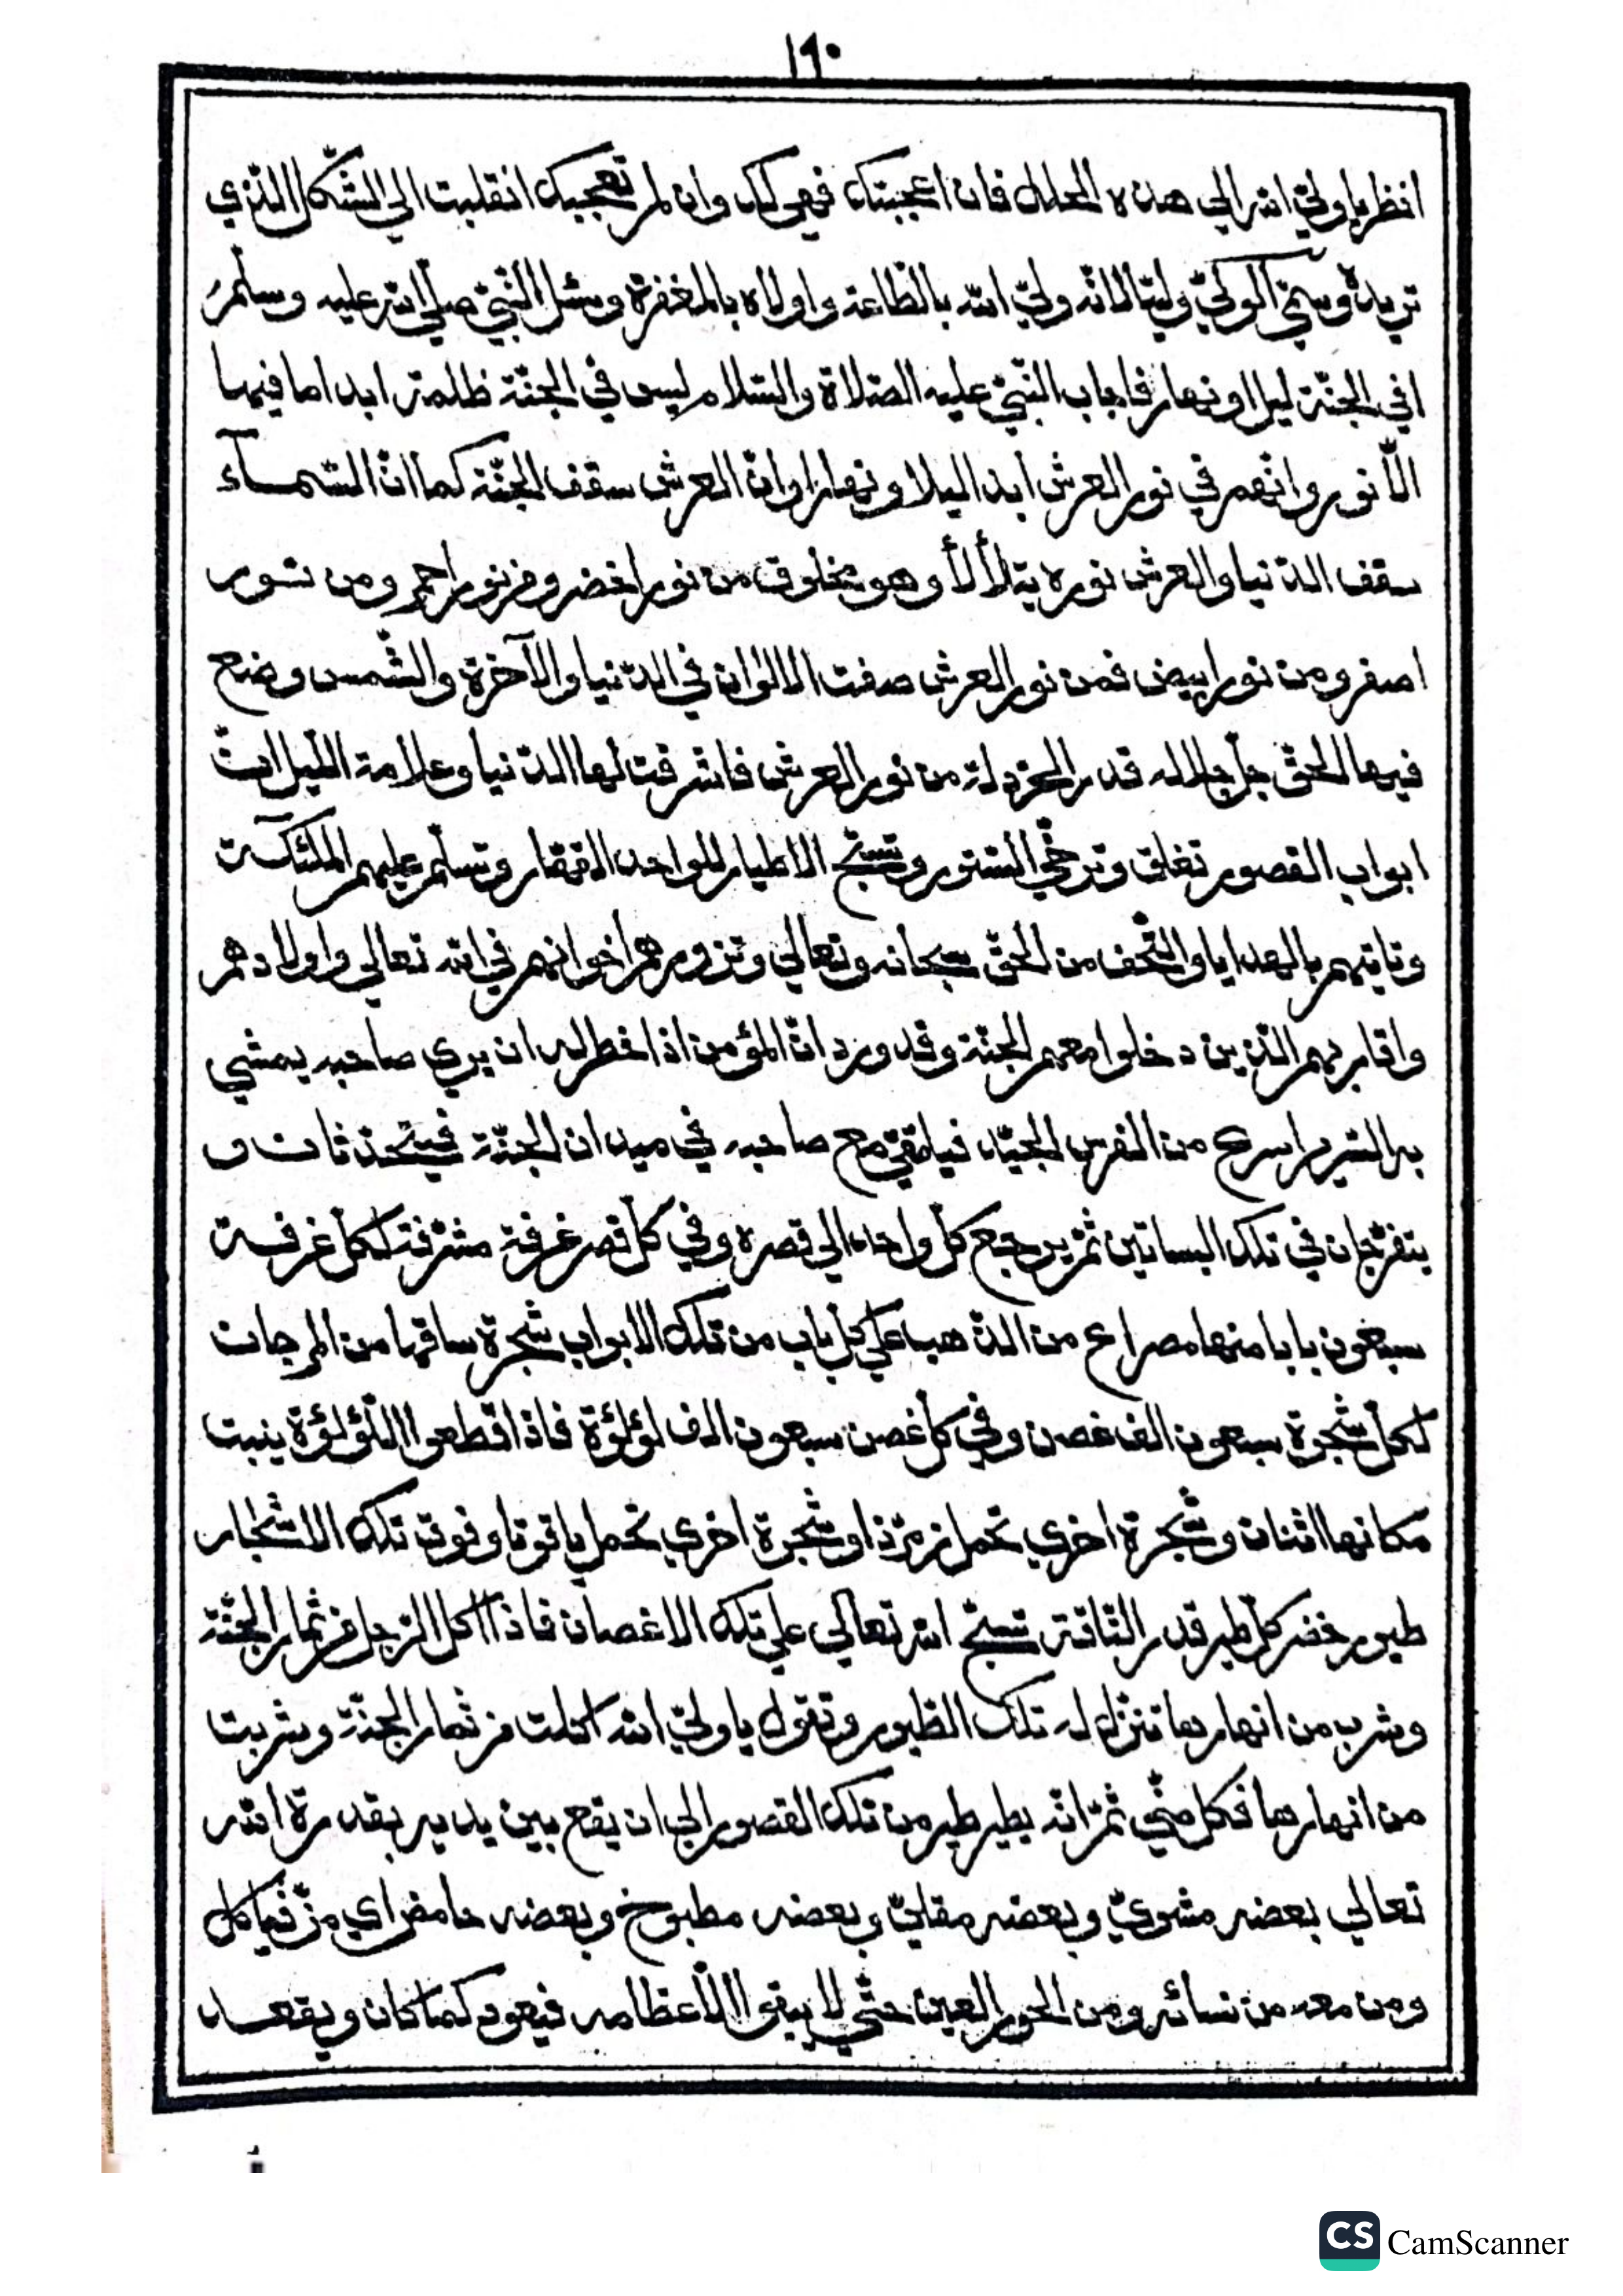 ١٦٠
انظر يا وليّ الله الي هذه الحلل فان اعجبتك فهي لك وان لم تعجبك انقلبت الي الشّكل الّذي
تريده وسمّي الوليّ وليّا لانّه وليّ الله بالطّاعة واولاه بالمغفرة وسئل النّبيّ صلّي الله عليه وسلّم
افي الجنّة ليل او نهار فاجاب النّبيّ عليه الصّلاة والسّلام ليس في الجنّة ظلمة ابدا ما فيها
الّا نور وانّهم في نور العرش ابدا ليلا ونهارا وانّ العرش سقف الجنّة كما انّ السّمآء
سقف الدّنيا والعرش نوره يتلألأ وهو مخلوق من نور اخضر ومن نور احمر ومن نور
اصفر ومن نور ابيض فمن نور العرش صفت الالوان في الدّنيا والآخرة والشّمس وضع
فيها الحقّ جلّ جلاله قدر الخردلة من نور العرش فاشرقت لها الدّنيا وعلامة اللّيل انّ
ابواب القصور تغلق وترخي السّتور وتسبّح الاطيار للواحد القهّار وتسلّم عليهم الملئكة
وتاتيهم بالهدايا والتّحف من الحقّ سبحانه وتعالي وتزورهم اخوانهم في الله تعالي واولادهم
واقاربهم الّذين دخلوا معهم الجنّة وقد ورد انّ المؤمن اذا خطر له ان يري صاحبه يمشي
به السّرير اسرع من الفرس الجيّد فيلتقي مع صاحبه في ميدان الجنّة فيتحدّثان و
يتفرّجان في تلك البساتين ثمّ يرجع كلّ واحد الي قصره وفي كلّ قصر غرفة مشرّفة لكلّ غرفة
سبعون بابا منها مصراع من الذّهب علي كلّ باب من تلك الابواب شجرة ساقها من المرجان
لكلّ شجرة سبعون الف غصن وفي كلّ غصن سبعون الف لؤلؤة فاذا قطعوا اللّؤلؤة ينبت
مكانها اثنان وشجرة اخري تحمل زمرّذا وشجرة اخري تحمل ياقوتا وفوق تلك الاشجار
طيور خضر كلّ طير قدر النّاقة تسبّح الله تعالي علي تلك الاغصان فاذا اكل الرّجل من ثمار الجنّة
وشرب من انهارها تنزل له تلك الطّيور وتقول يا وليّ الله اكلت من ثمار الجنّة وشربت
من انهارها فكل منّي ثمّ انّه يطير طير من تلك القصور الي ان يقع بين يديه بقدرة الله
تعالي بعضه مشويّ وبعضه مقليّ وبعضه مطبوخ وبعضه حامض اي مزّ فياكل
ومن معه من نسائه ومن الحور العين حتّي لا يبقي الّا عظامه فيعود كما كان ويقعد
CS CamScanner